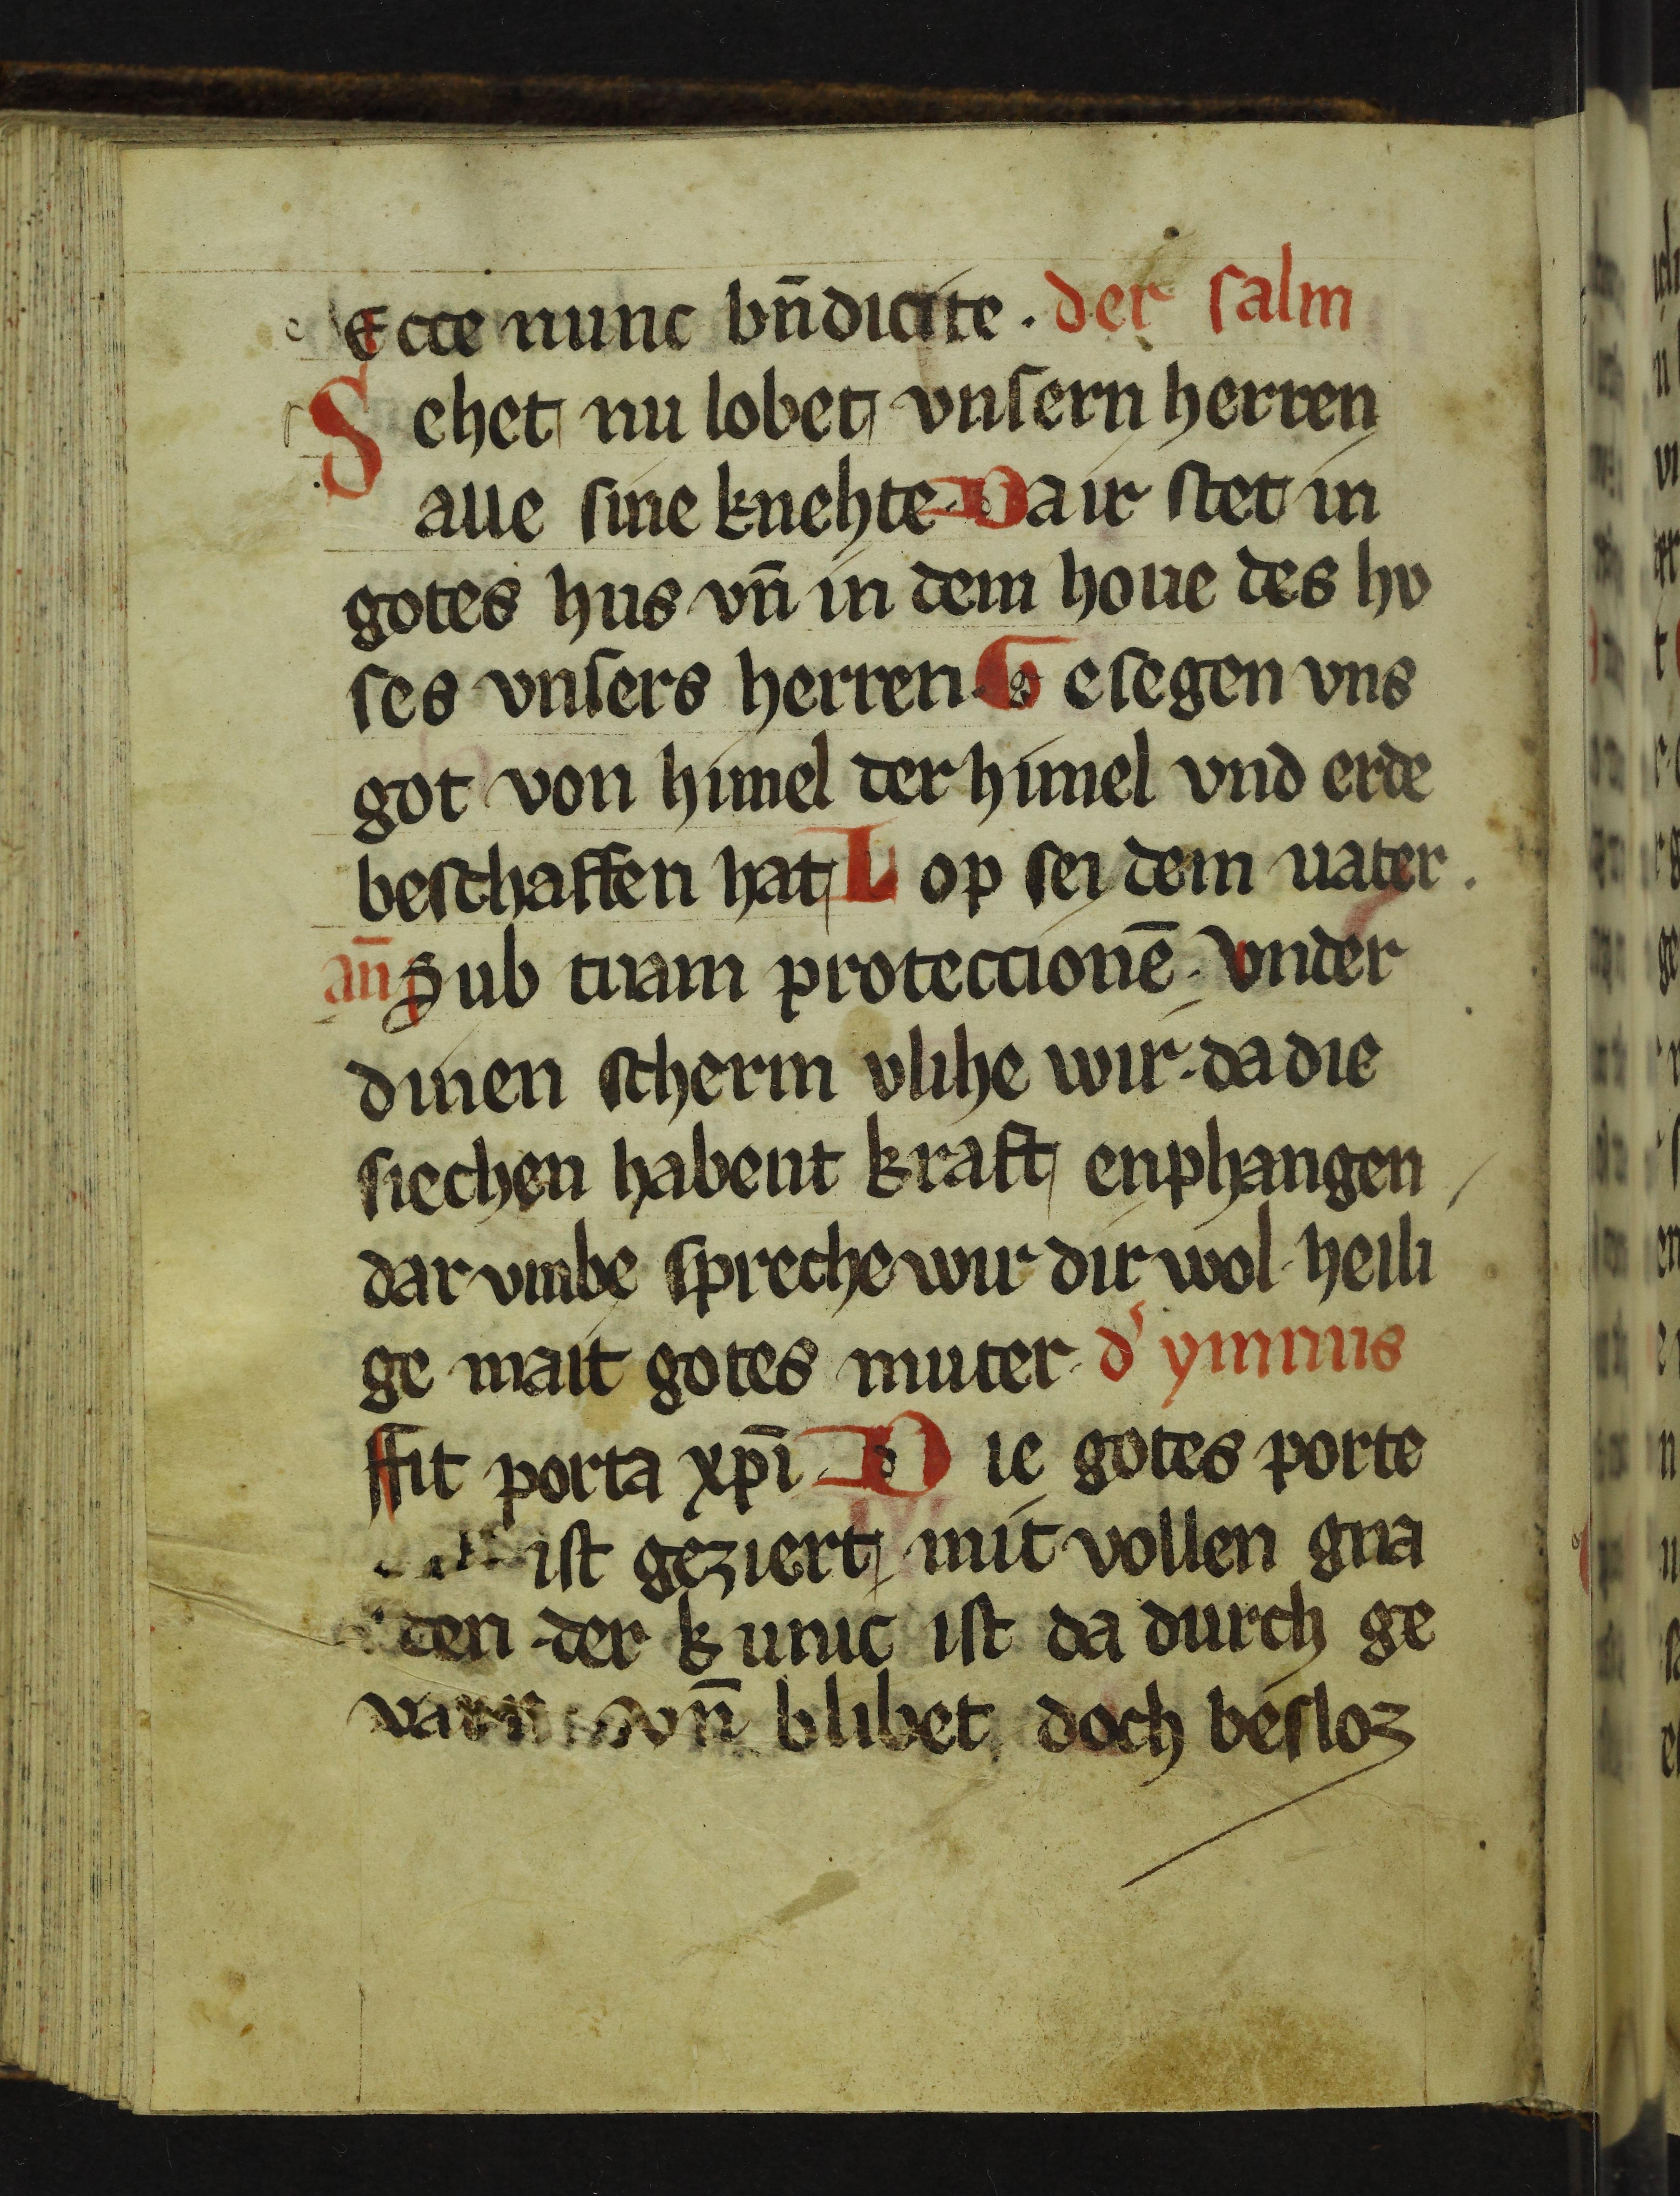 Ecce nunc bn̄dicite · der salm
Sehet nu lobet vnsern herren
alle sine knehte · Da ir stet in
gotes hus vn̄ in dem houe des hv
ses vnsers herren · Gesegen vns
got von himel der himel vnd erde
beschaffen hat Lop sei dem uater ·
an̄ Sub tuam proteccionē · Vnder
dinen scherm vlihe wir · da die
siechen habent kraft enphangen
dar vmbe spreche wir dir wol · heili
ge mait gotes muter · d' ymnus
ffit porta xp̄i · Die gotes porte
ist geziert mit vollen gna
den · der kunic ist da durch ge
varn vn̄ blibet doch besloz